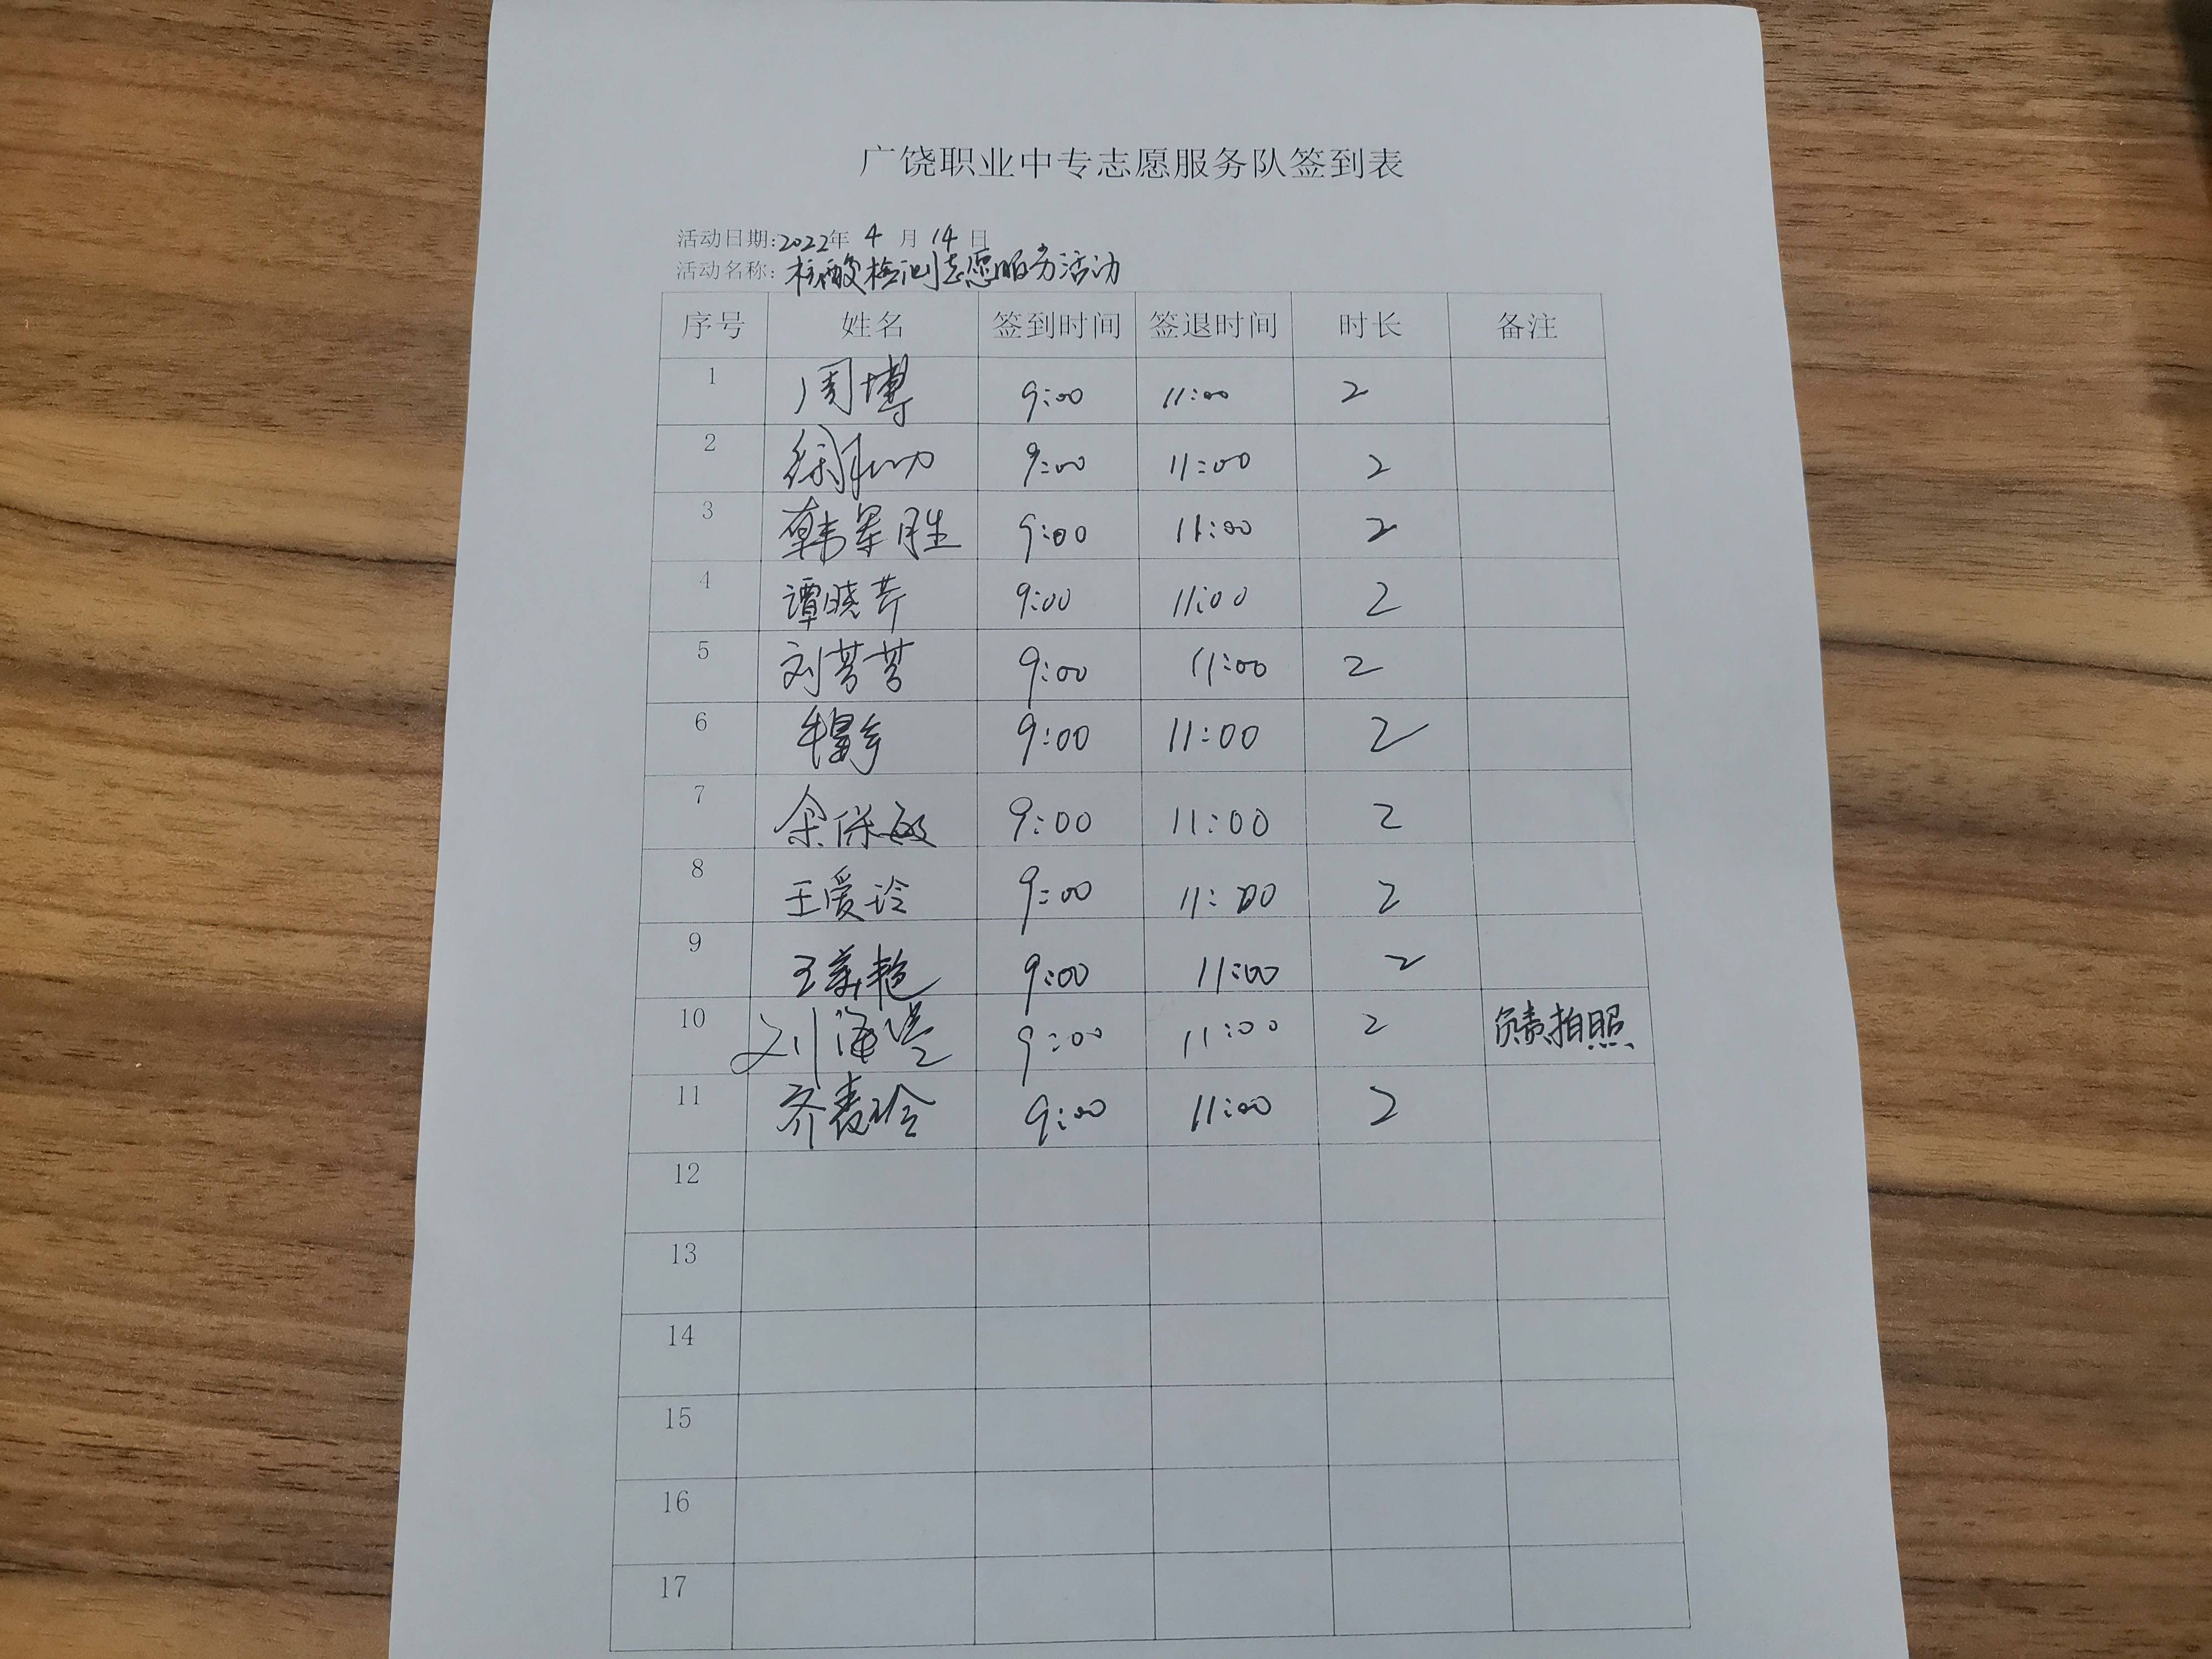 广饶职业中专志愿服务队签到表
活动日期:2022年 4 月 14 日
活动名称: 核酸检测志愿服务活动
序号 姓名 签到时间 签退时间 时长 备注
1 周博 9:00 11:00 2
2 9:00 11:00 2
3 韩军胜 9:00 11:00 2
4 谭晓芹 9:00 11:00 2
5 刘芳芳 9:00 11:00 2
6 9:00 11:00 2
7 余保敏 9:00 11:00 2
8 王爱玲 9:00 11:00 2
9 9:00 11:00 2
10 9:00 11:00 2 负责拍照
11 9:00 11:00 2
12
13
14
15
16
17